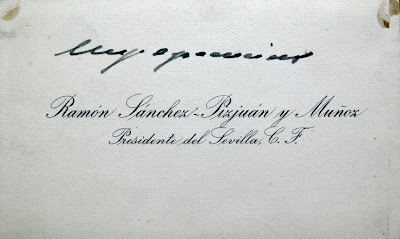 Muy agradecido
Ramón Sánchez-Pizjuán y Muñoz
Presidente del Sevilla, C. F.